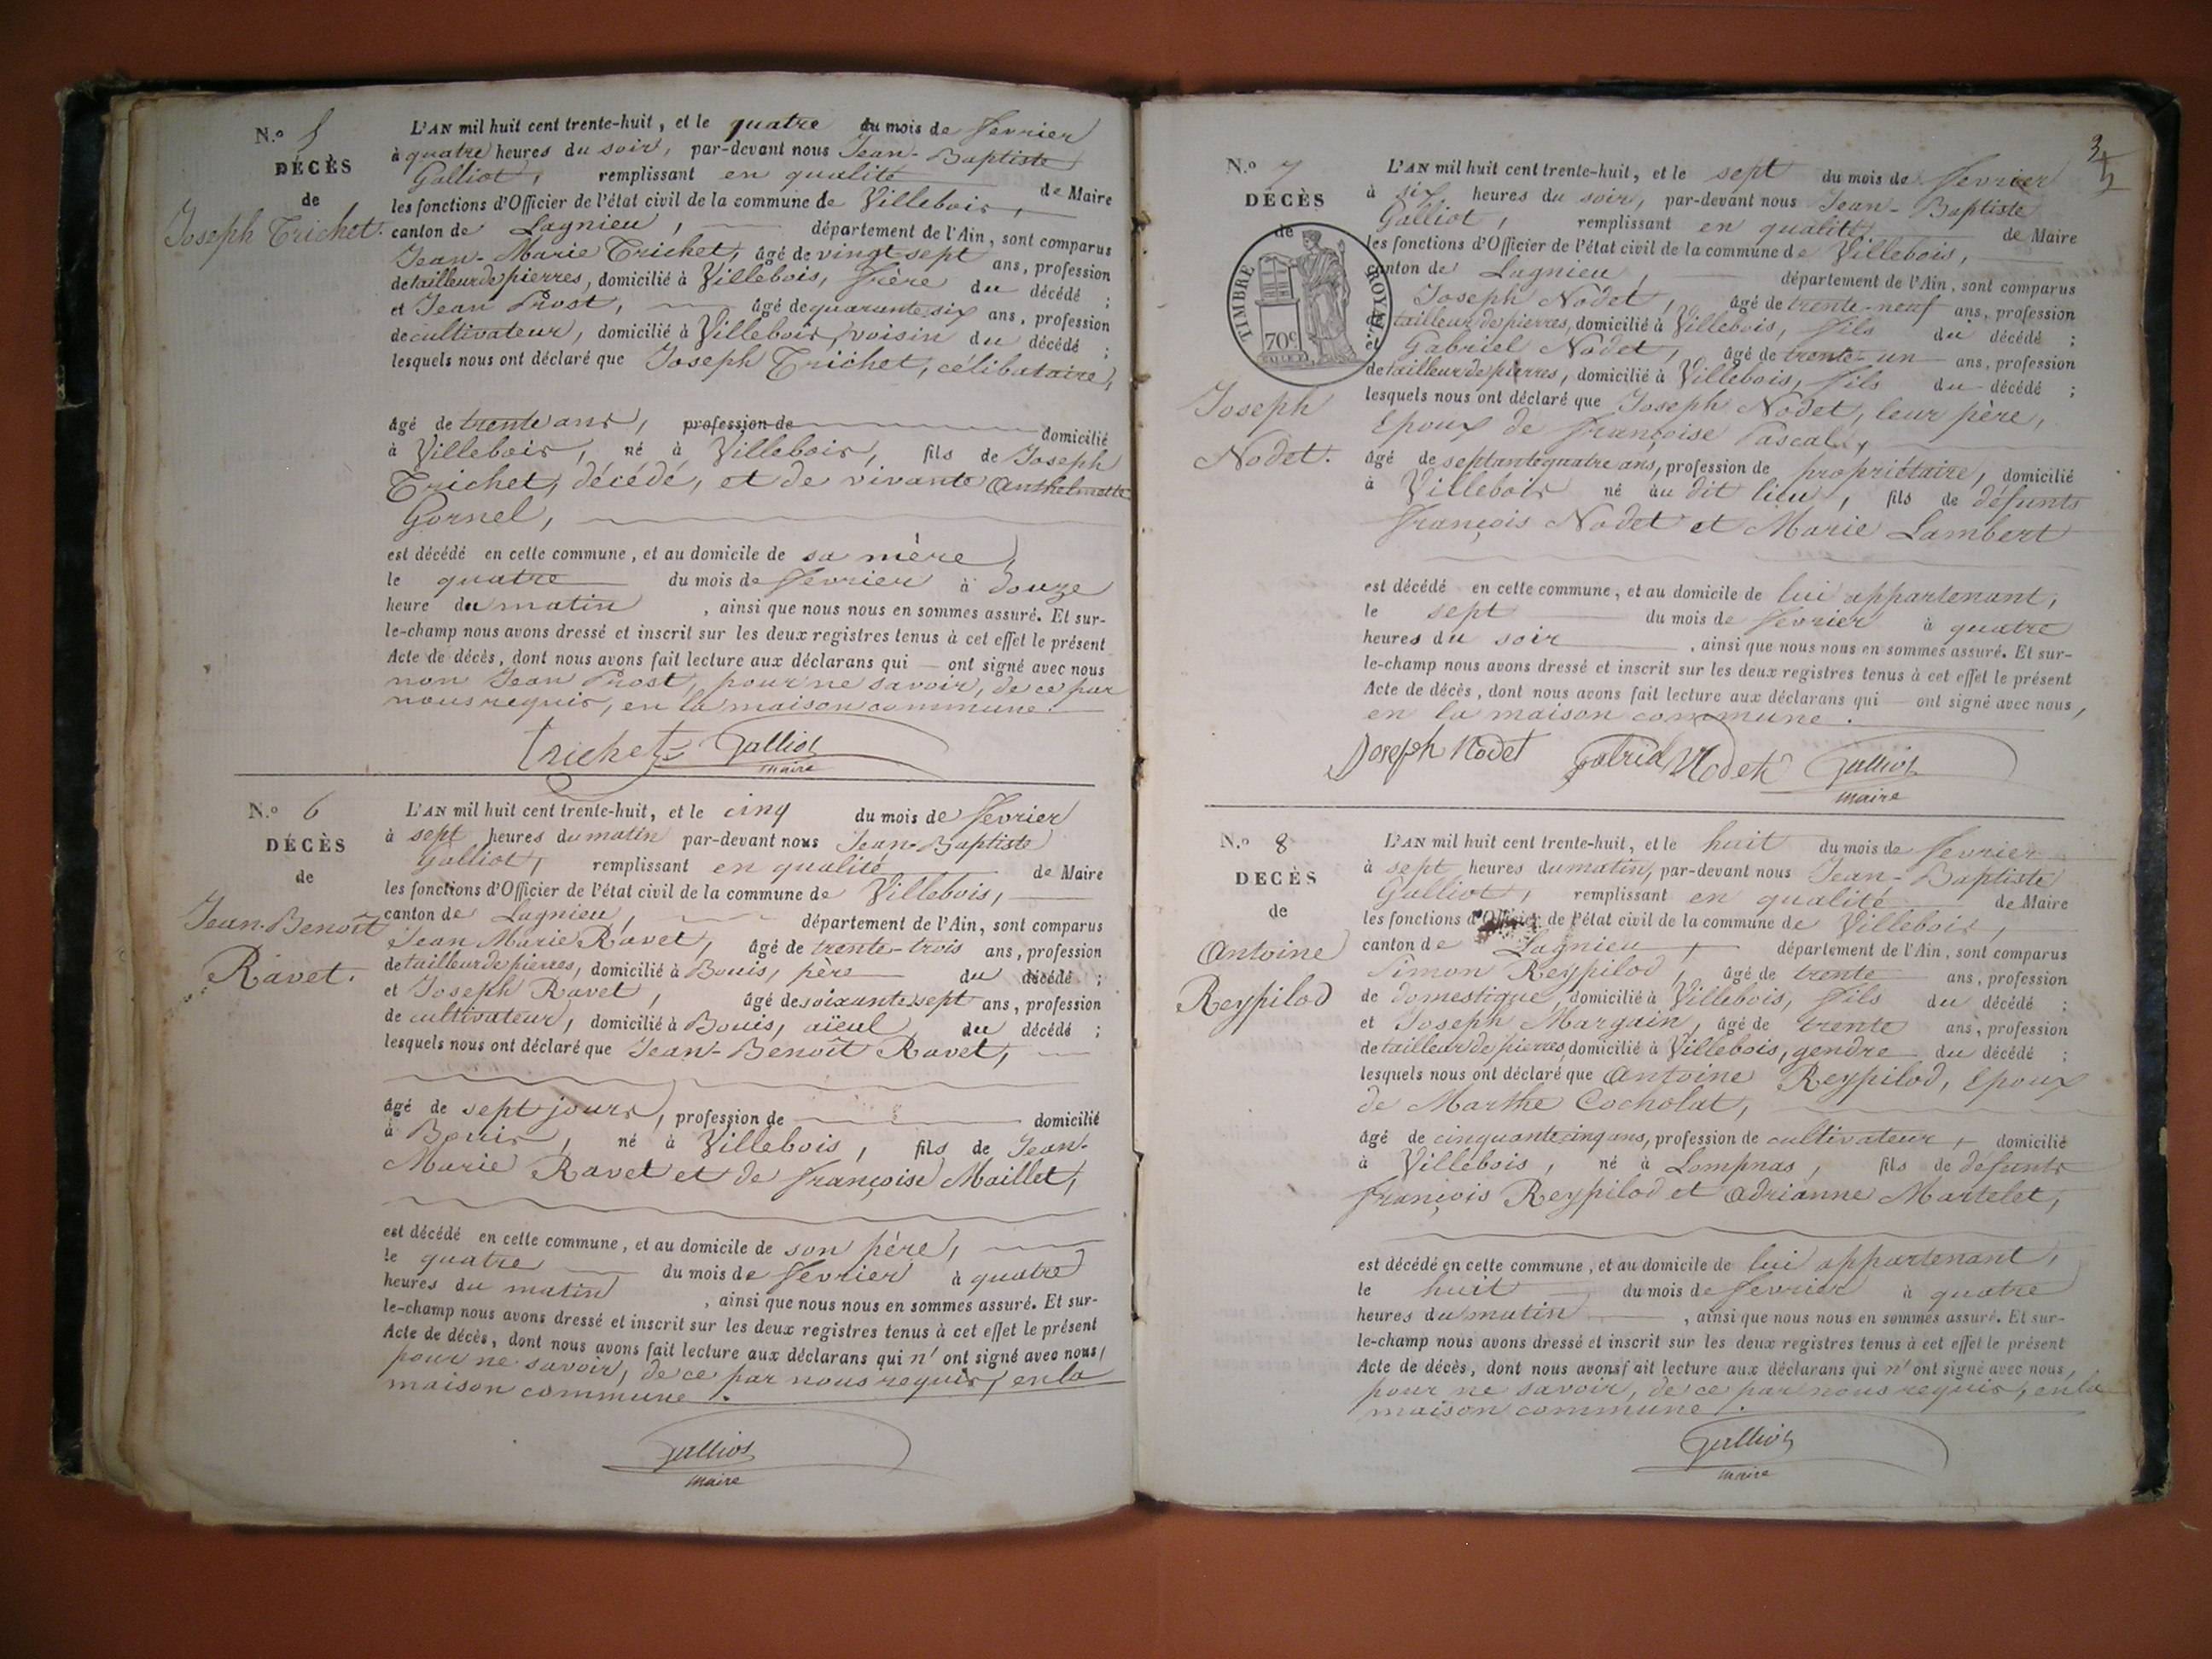 N.º 5
DÉCÈS
de
Joseph Trichet.
L'AN mil huit cent trente-huit, et le quatre du mois de février
à quatre heures du soir, par-devant nous Jean-Baptiste
Galliot, remplissant en qualité de Maire
les fonctions d'Officier de l'état civil de la commune de Villebois,
canton de Lagnieu, département de l'Ain, sont comparus
Jean-Marie Trichet, âgé de vingt-sept ans, profession
de tailleur de pierres, domicilié à Villebois, frère du décédé ;
et Jean Prost, âgé de quarante-six ans, profession
de cultivateur, domicilié à Villebois, voisin du décédé ;
lesquels nous ont déclaré que Joseph Trichet, célibataire,
âgé de trente ans, profession de domicilié
à Villebois, né à Villebois, fils de Joseph
Trichet, décédé, et de vivante Anthelmette
Gornel,
est décédé en cette commune, et au domicile de sa mère,
le quatre du mois de février à douze
heure du matin, ainsi que nous nous en sommes assuré. Et sur-
le-champ nous avons dressé et inscrit sur les deux registres tenus à cet effet le présent
Acte de décès, dont nous avons fait lecture aux déclarans qui ont signé avec nous
non Jean Prost, pour ne savoir, de ce par
nous requis, en la maison commune.
trichet Galliot
maire
N.º 6
DÉCÈS
de
Jean-Benoît
Ravet.
L'AN mil huit cent trente-huit, et le cinq du mois de février
à sept heures du matin par-devant nous Jean-Baptiste
Galliot, remplissant en qualité de Maire
les fonctions d'Officier de l'état civil de la commune de Villebois,
canton de Lagnieu, département de l'Ain, sont comparus
Jean Marie Ravet, âgé de trente-trois ans, profession
de tailleur de pierres, domicilié à Bouis, père du décédé ;
et Joseph Ravet, âgé de soixante sept ans, profession
de cultivateur, domicilié à Bouis, aïeul, du décédé ;
lesquels nous ont déclaré que Jean-Benoît Ravet,
âgé de sept jours, profession de domicilié
à Bouis, né à Villebois, fils de Jean-
Marie Ravet et de françoise Maillet,
est décédé en cette commune, et au domicile de son père,
le quatre du mois de février à quatre
heures du matin, ainsi que nous nous en sommes assuré. Et sur-
le-champ nous avons dressé et inscrit sur les deux registres tenus à cet effet le présent
Acte de décès, dont nous avons fait lecture aux déclarans qui n'ont signé avec nous,
pour ne savoir, de ce par nous requis, en la
maison commune.
Galliot
maire
3
N.º 7
DÉCÈS
de
TIMBRE ROYAL
70c
Joseph
Nodet.
L'AN mil huit cent trente-huit, et le sept du mois de février
à six heures du soir, par-devant nous Jean-Baptiste
Galliot, remplissant en qualité de Maire
les fonctions d'Officier de l'état civil de la commune de Villebois,
canton de Lagnieu, département de l'Ain, sont comparus
Joseph Nodet, âgé de trente-neuf ans, profession
de tailleur de pierres, domicilié à Villebois, fils du décédé ;
et Gabriel Nodet, âgé de trente-un ans, profession
de tailleur de pierres, domicilié à Villebois, fils du décédé ;
lesquels nous ont déclaré que Joseph Nodet, leur père,
Epoux de françoise Pascal,
âgé de septante quatre ans, profession de propriétaire, domicilié
à Villebois né au dit lieu, fils de défunts
françois Nodet et Marie Lambert
est décédé en cette commune, et au domicile de lui appartenant,
le sept du mois de février à quatre
heures du soir, ainsi que nous nous en sommes assuré. Et sur-
le-champ nous avons dressé et inscrit sur les deux registres tenus à cet effet le présent
Acte de décès, dont nous avons fait lecture aux déclarans qui ont signé avec nous,
en la maison commune.
Joseph Nodet Gabriel Nodet Galliot
maire
N.º 8
DÉCÈS
de
Antoine
Reypilod
L'AN mil huit cent trente-huit, et le huit du mois de février
à sept heures du matin, par-devant nous Jean-Baptiste
Galliot, remplissant en qualité de Maire
les fonctions d'Officier de l'état civil de la commune de Villebois,
canton de Lagnieu, département de l'Ain, sont comparus
Simon Reypilod, âgé de trente ans, profession
de domestique, domicilié à Villebois, fils du décédé ;
et Joseph Margain, âgé de trente ans, profession
de tailleur de pierres, domicilié à Villebois, gendre du décédé ;
lesquels nous ont déclaré que Antoine Reypilod, Epoux
de Marthe Cocholat,
âgé de cinquante cinq ans, profession de cultivateur, domicilié
à Villebois, né à Lompnas, fils de défunts
françois Reypilod et Adrianne Martelet,
est décédé en cette commune, et au domicile de lui appartenant,
le huit du mois de février à quatre
heures du matin, ainsi que nous nous en sommes assuré. Et sur-
le-champ nous avons dressé et inscrit sur les deux registres tenus à cet effet le présent
Acte de décès, dont nous avons fait lecture aux déclarans qui n'ont signé avec nous,
pour ne savoir, de ce par nous requis, en la
maison commune.
Galliot
maire